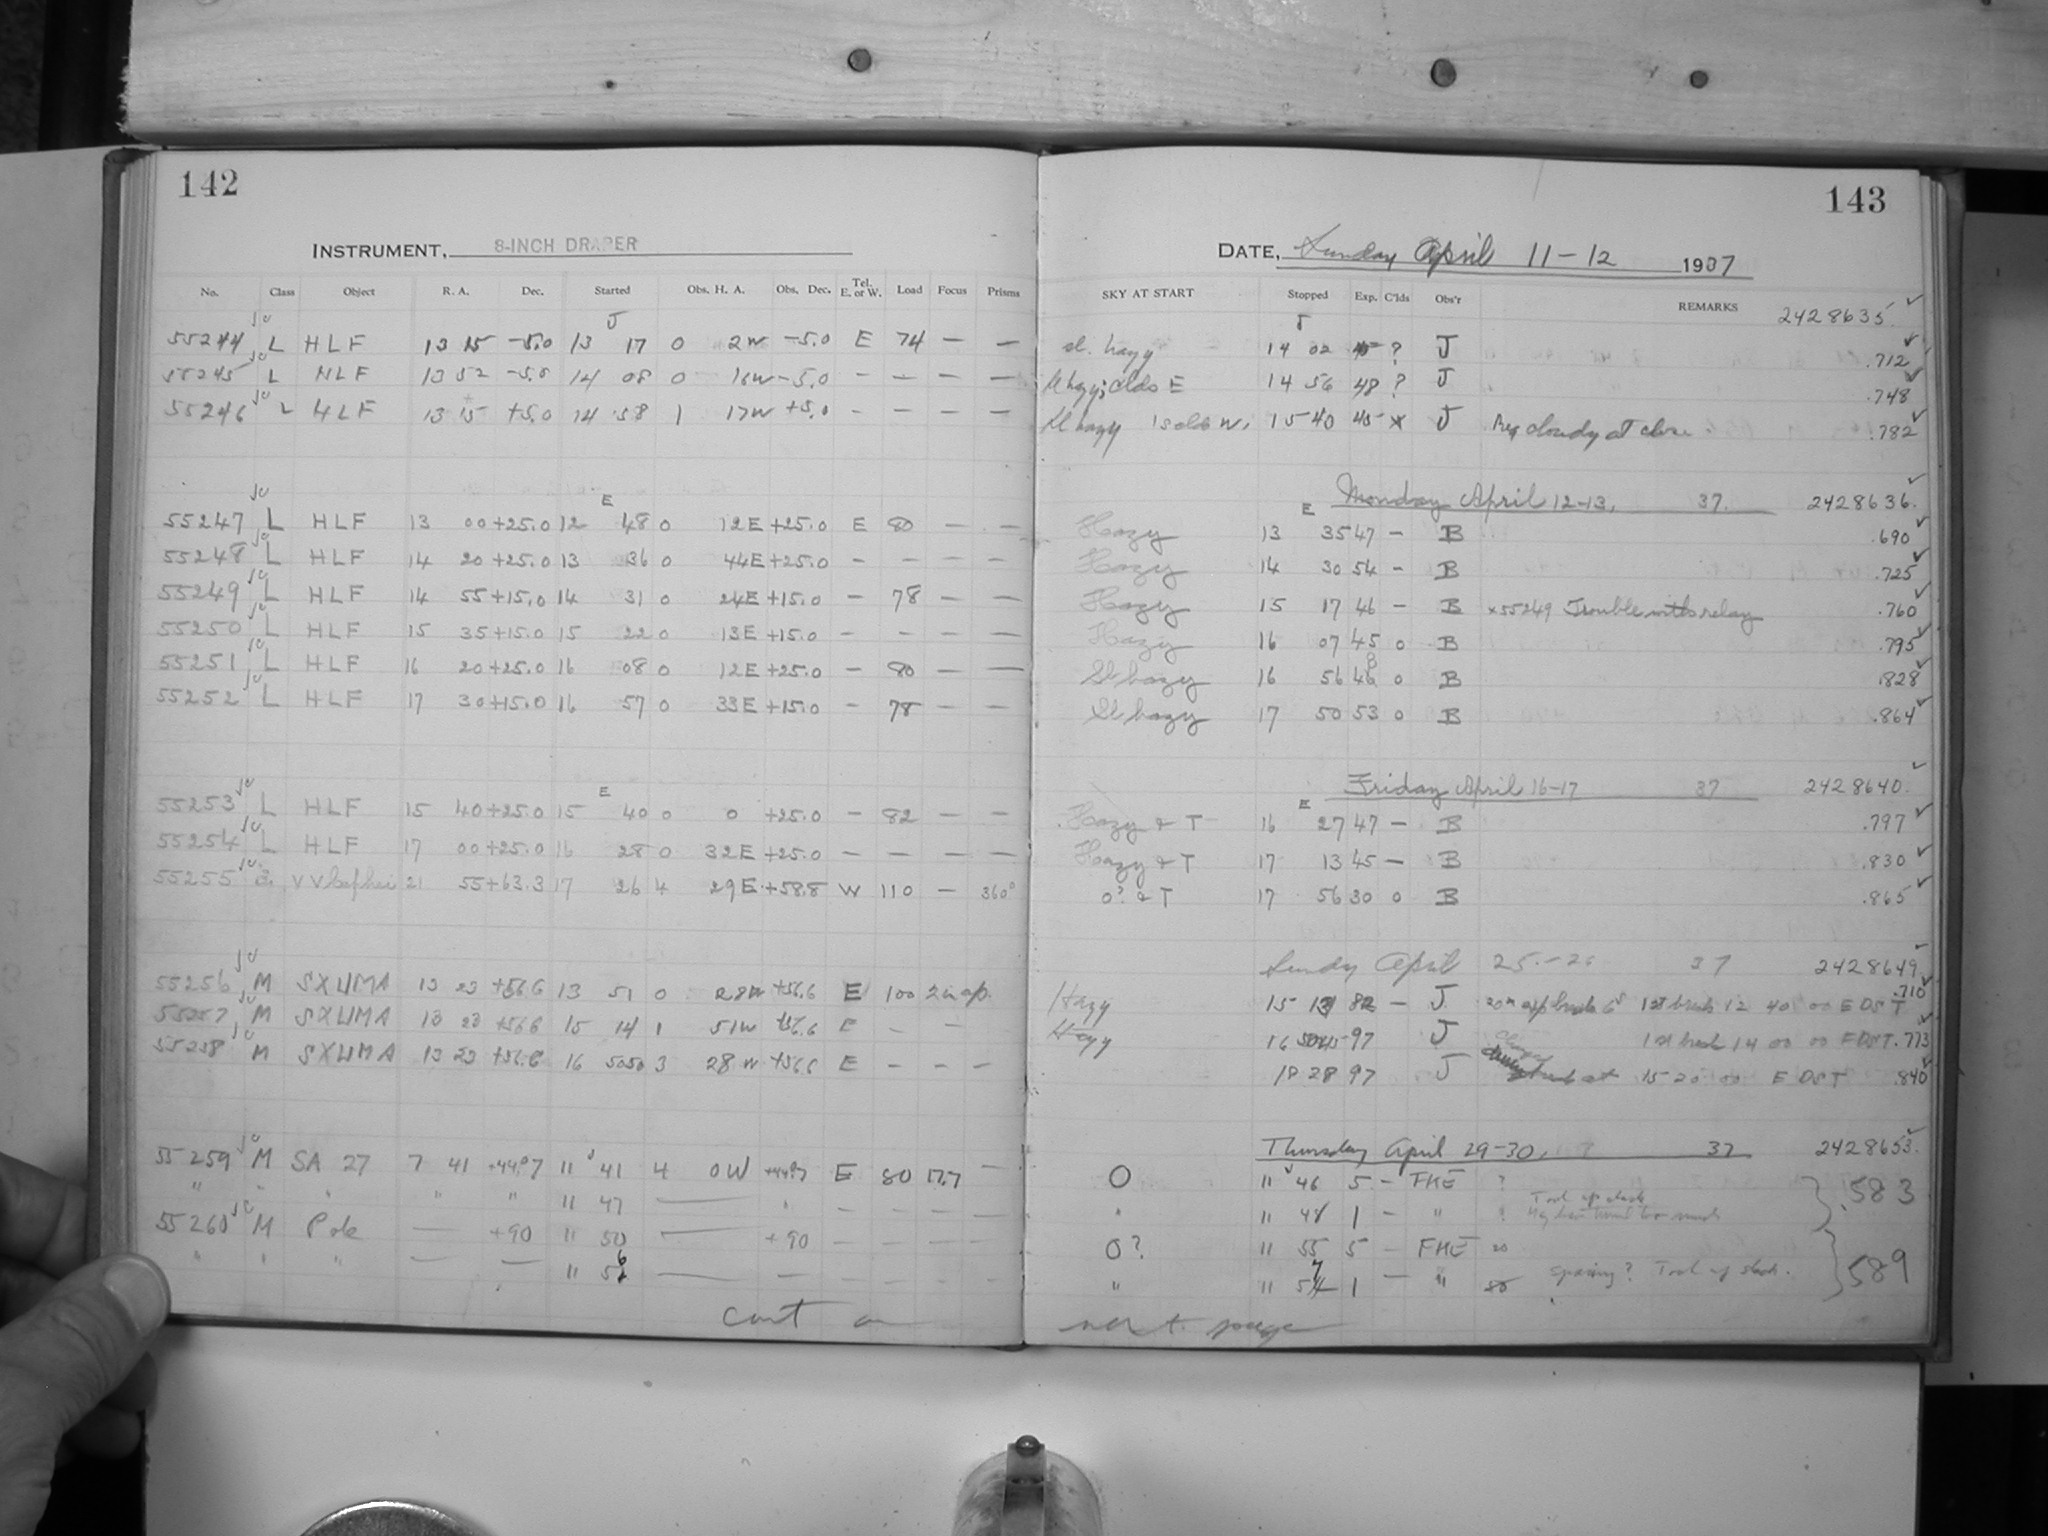 142
INSTRUMENT, 8-INCH DRAPER
No. Class Object R. A. Dec. Started Obs. H. A. Obs. Dec. Tel. E. or W. Load Focus Prisms
55244 L HLF 13 15 -5.0 13 17 0 2W -5.0 E 74 — —
55245 L HLF 13 52 -5.0 14 08 0 16W -5.0 — — — —
55246 L HLF 13 15 +5.0 14 58 1 17W +5.0 — — — —
55247 L HLF 13 00 +25.0 12 48 0 12E +25.0 E 80 — —
55248 L HLF 14 20 +25.0 13 36 0 44E +25.0 — — — —
55249 L HLF 14 55 +15.0 14 31 0 24E +15.0 — 78 — —
55250 L HLF 15 35 +15.0 15 22 0 13E +15.0 — — — —
55251 L HLF 16 20 +25.0 16 08 0 12E +25.0 — 80 — —
55252 L HLF 17 30 +15.0 16 57 0 33E +15.0 — 78 — —
55253 L HLF 15 40 +25.0 15 40 0 0 +25.0 — 82 — —
55254 L HLF 17 00 +25.0 16 28 0 32E +25.0 — — — —
55255 VV Cephei 21 55 +63.3 17 26 4 29E +58.8 W 110 — 360°
55256 M SXUMA 13 23 +56.6 13 51 0 28W +56.6 E 100 2 in ap.
55257 M SXUMA 13 23 +56.6 15 14 1 51W +56.6 E — —
55258 M SXUMA 13 23 +56.6 16 50 3 28W +56.6 E — — —
55259 M SA 27 7 41 +44.7 11 41 4 0W +44.7 E 80 17.7 —
" " " " " 11 47 — " — — — —
55260 M Pole — +90 11 50 — +90 — — — —
" " " — — 11 56 — — — — — —
cont on
143
DATE, Sunday April 11-12 1937
SKY AT START Stopped Exp. C'lds Obs'r REMARKS 2428635.
sl. hazy 14 02 45 ? J .712
sl hazy; clds E 14 56 48 ? J .748
sl hazy clds W. 15 40 45 x J cloudy at close .782
Monday April 12-13, 37. 2428636.
Hazy 13 35 47 — B .690
Hazy 14 30 54 — B .725
Hazy 15 17 46 — B x55249 Trouble with relay .760
Hazy 16 07 45 0 B .795
Sl hazy 16 56 48 0 B .828
Sl hazy 17 50 53 0 B .864
Friday April 16-17 37 2428640.
Hazy & T 16 27 47 — B .797
Hazy & T 17 13 45 — B .830
0? & T 17 56 30 0 B .865
Sunday April 25-26 37 2428649.
Hazy 15 13 82 — J 1st break 12 40 00 EDST .710
Hazy 16 50 97 J 1st break 14 00 00 EDST .773
18 28 97 J break at 15 20 00 EDST .840
Thursday April 29-30, 37 2428653.
0 11 46 5 — FME ? .583
" 11 48 1 — " ? Took up slack
0? 11 55 5 — FME 20 .589
" 11 57 1 — " spacing? Took up slack.
next page